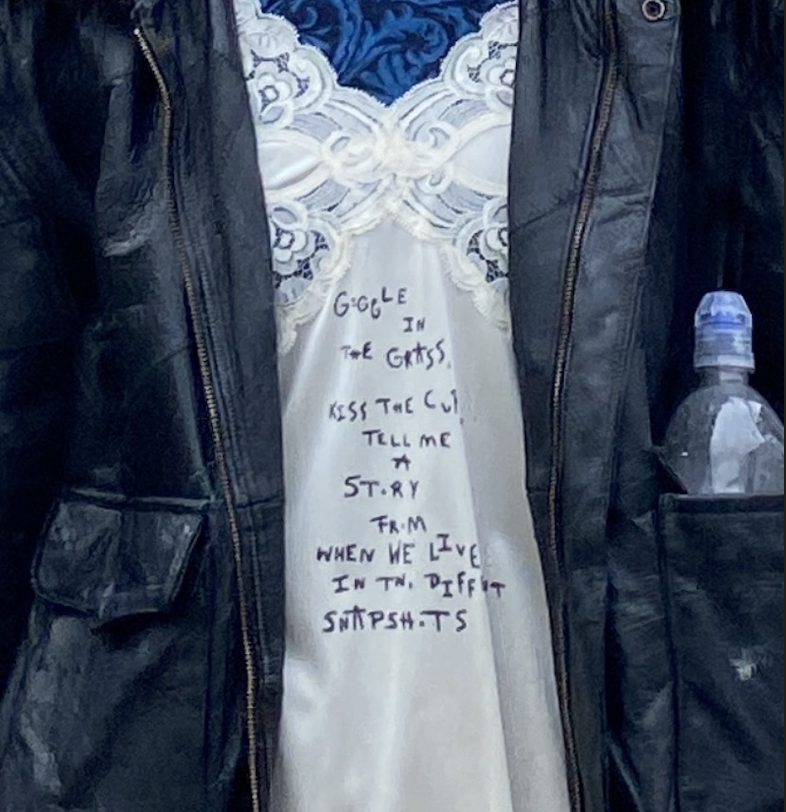 GIGGLE
IN
THE GRASS,
KISS THE CUT,
TELL ME
A
STORY
FROM
WHEN WE LIVE
IN DIFF
SNAPSHOTS